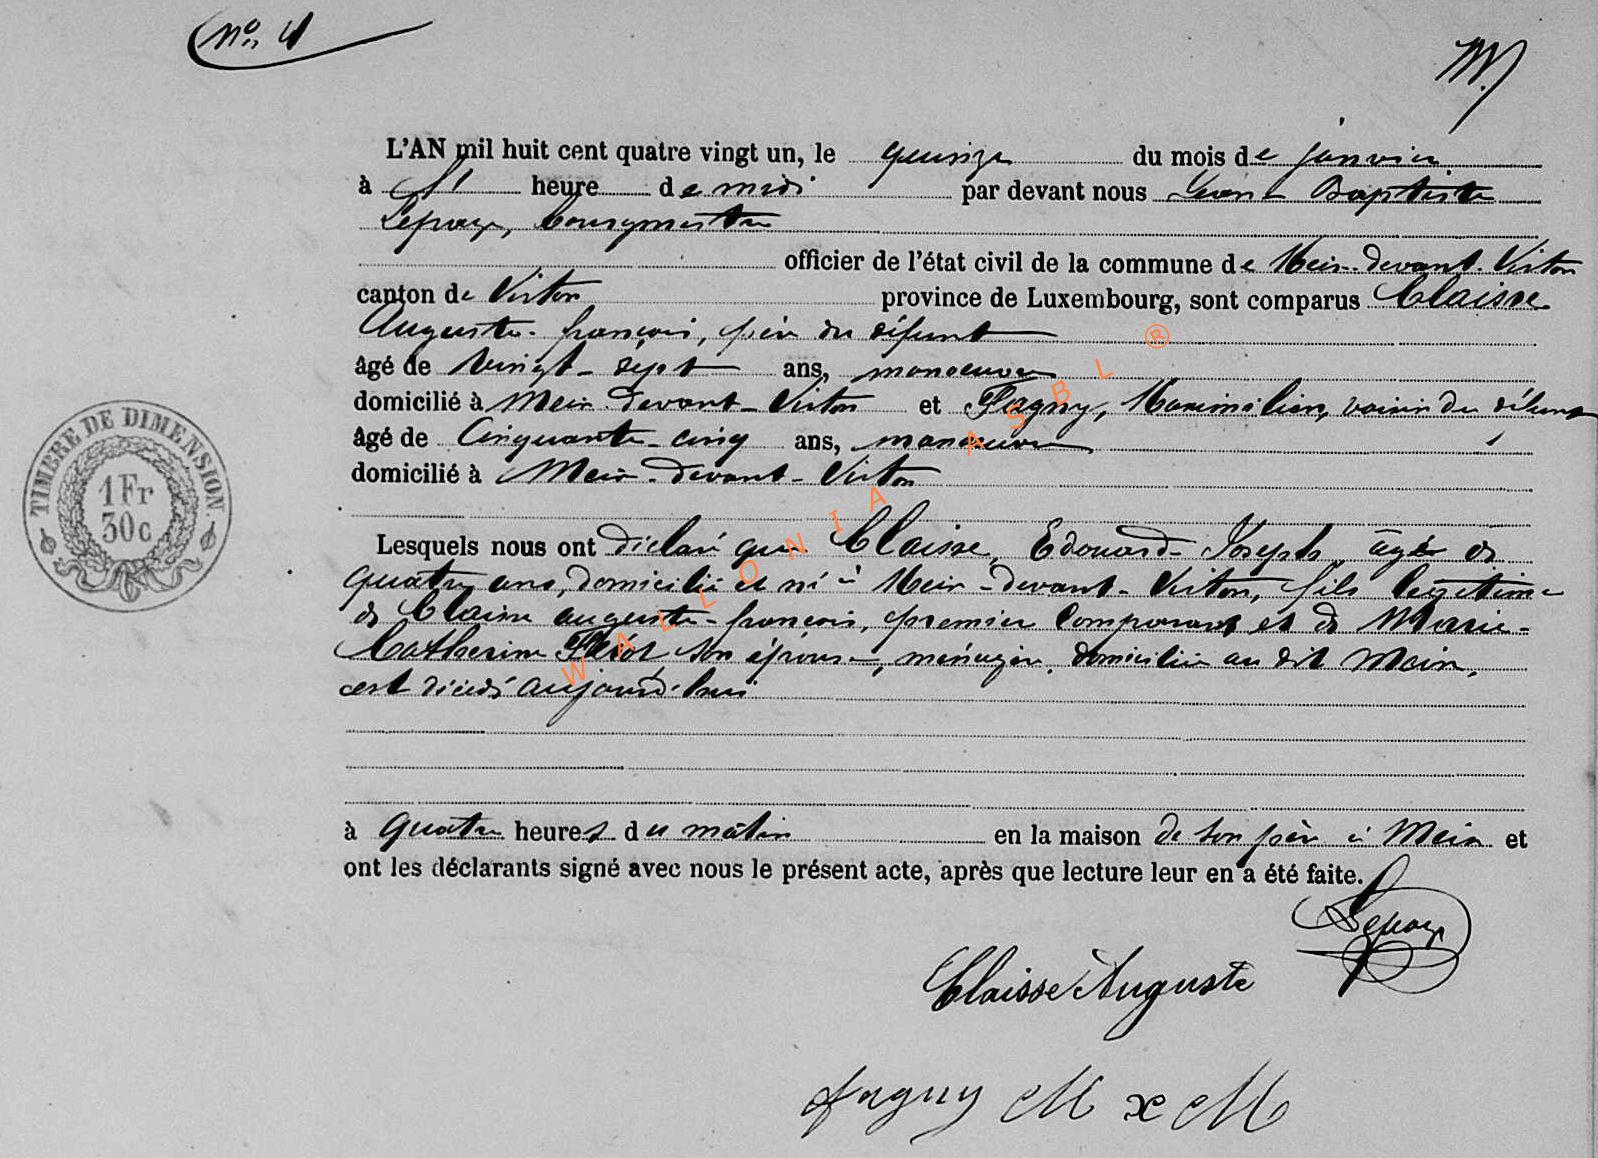 No 4
L'AN mil huit cent quatre vingt un, le quinze du mois de janvier
à l' heure de midi par devant nous Jean Baptiste
Lepage, bourgmestre
officier de l'état civil de la commune de Meix-devant-Virton
canton de Virton province de Luxembourg, sont comparus Claisse
Auguste-françois, père du défunt
âgé de Vingt-sept ans, manoeuvre
domicilié à Meix-devant-Virton et Fagny, Maximilien, voisin du défunt
âgé de Cinquante-cinq ans, manoeuvre
domicilié à Meix-devant-Virton
Lesquels nous ont déclaré que Claisse, Edouard-Joseph, âgé de
quatre ans, domicilié et né à Meix-devant-Virton, fils légitime
de Claisse auguste-françois, premier Comparant et de Marie-
Catherine son épouse, ménagère, domiciliée au dit Meix,
est décédé aujourd'hui
à quatre heures du matin en la maison de son père à Meix et
ont les déclarants signé avec nous le présent acte, après que lecture leur en a été faite.
Lepage
Claisse Auguste
fagny M x M
TIMBRE DE DIMENSION
1 Fr
30c
WALLONIA ASBL ®